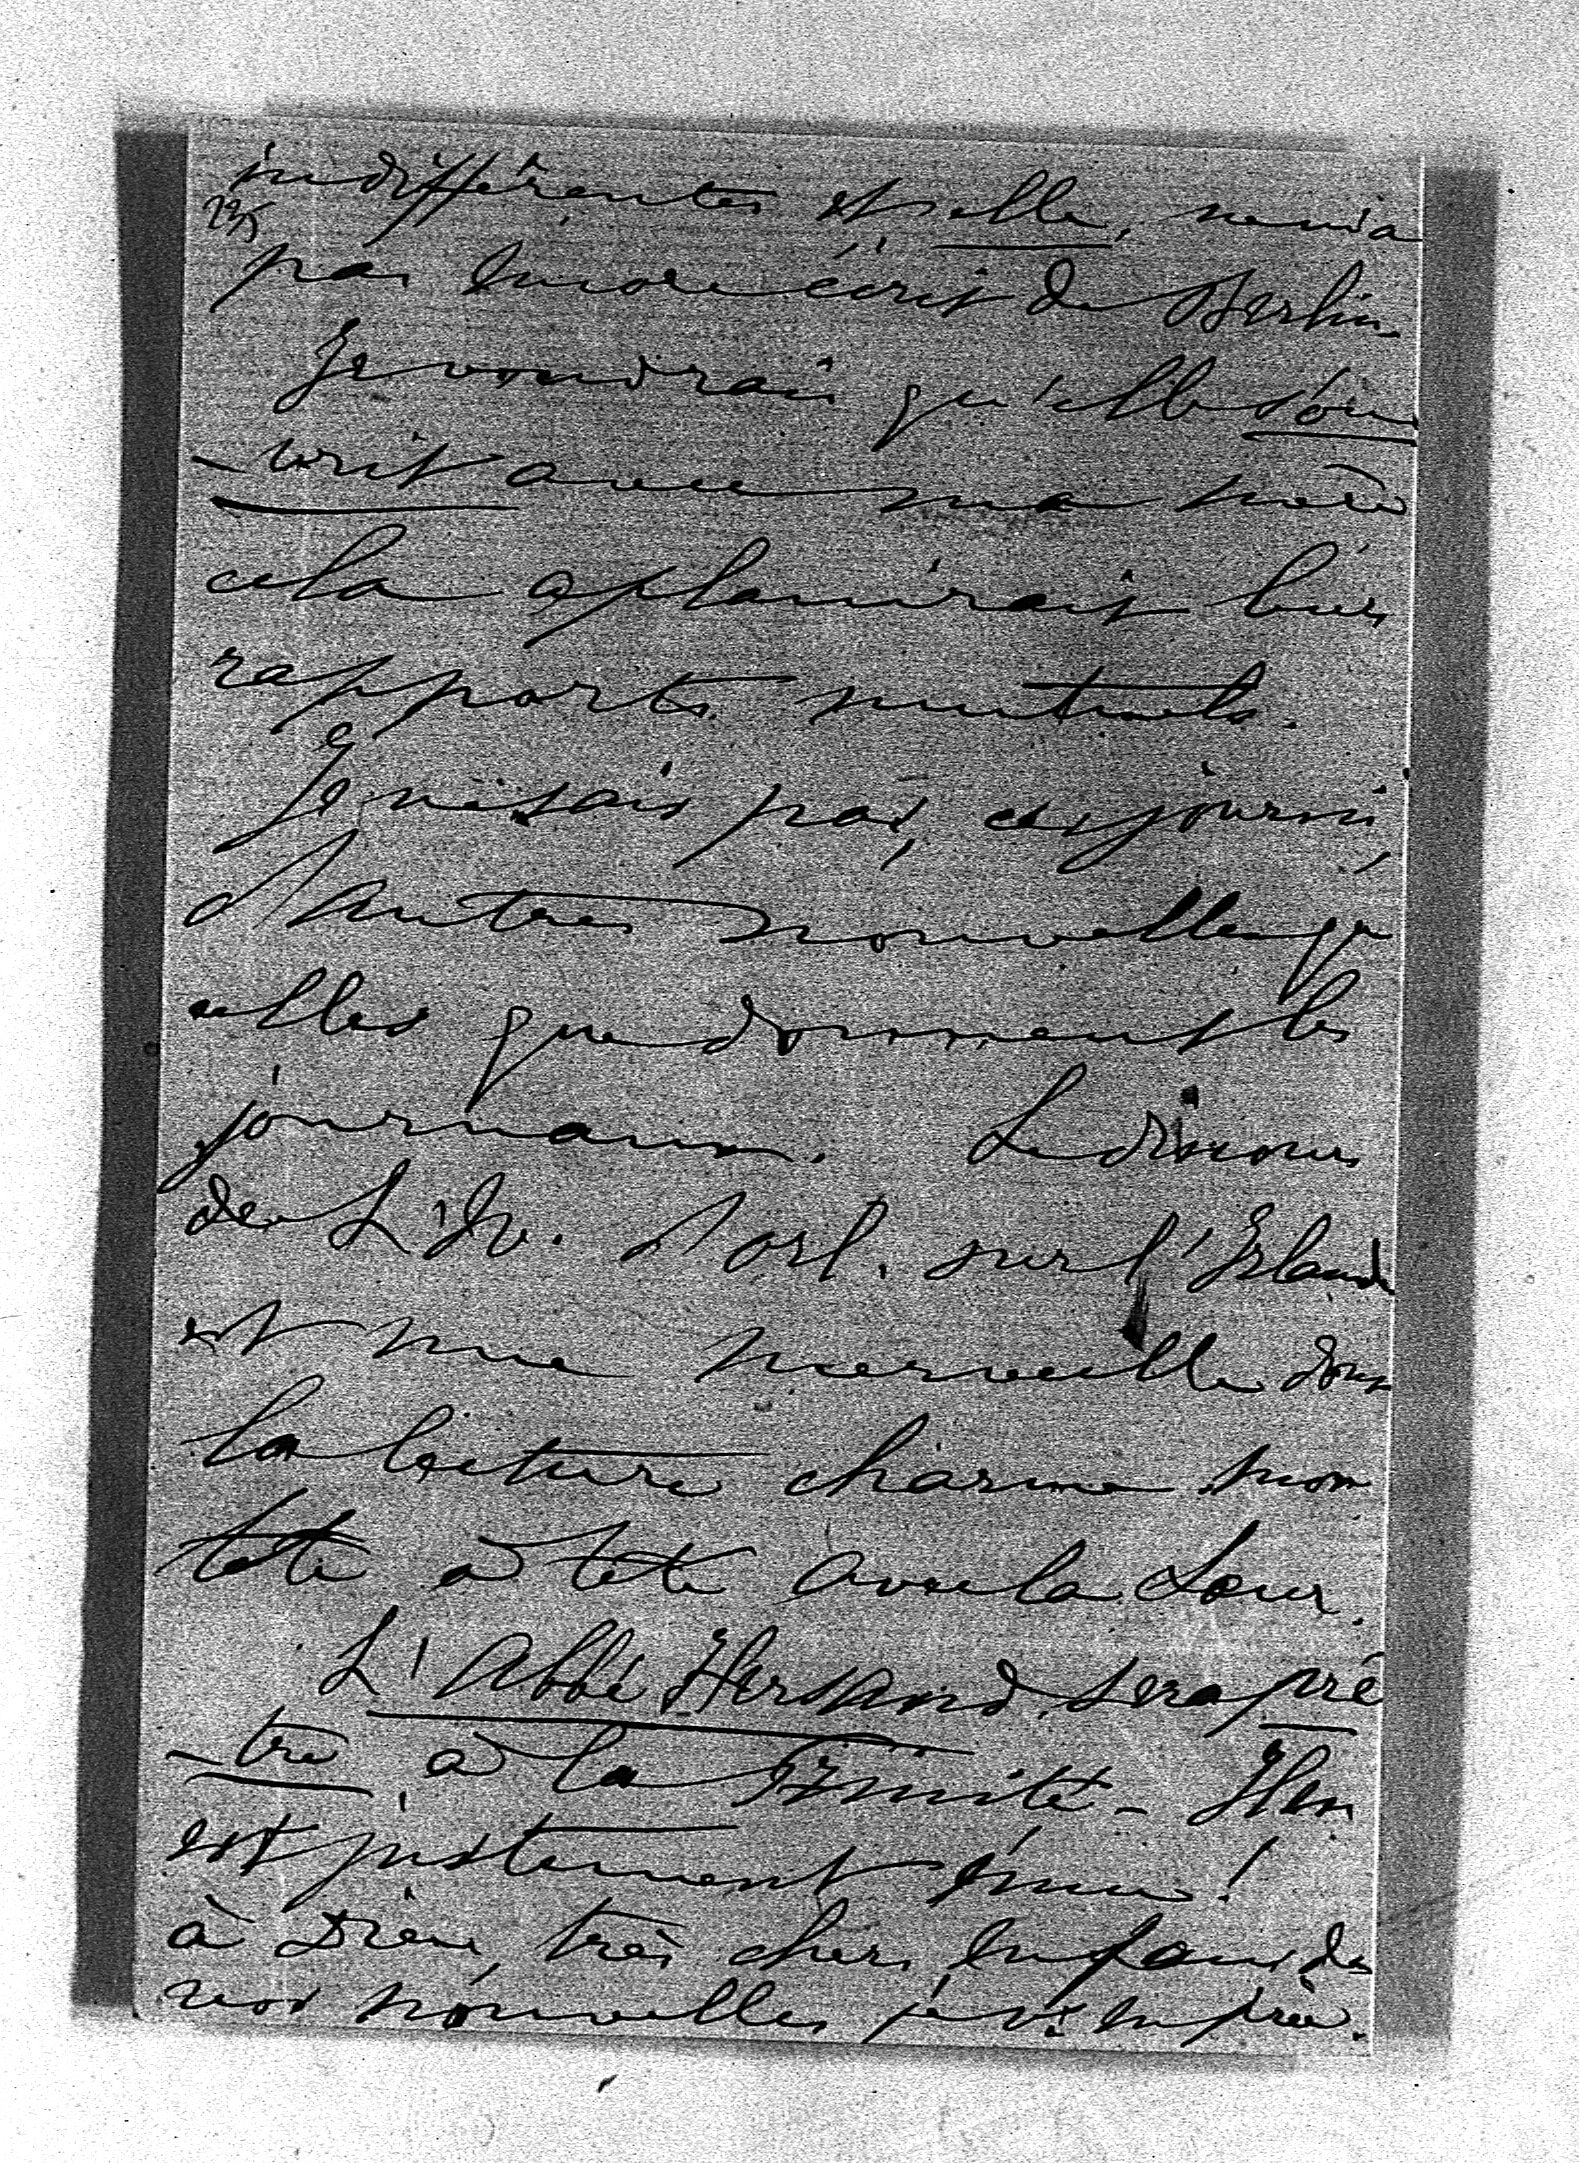 indifférentes et elle, ne m'a
235
pas encore écrit de Berlin.
Je voudrais qu'elle s'ou
-vrit avec ma mère
cela aplanirait leurs
rapports mutuels.
Je ne sais pas, ces jours ci,
d'autres nouvelles que
celles que donnent les
journaux. Le discours
de L'Ev. d'Orl. sur l'Irlande
est une merveille dont
la lecture charme mon
tête à tête avec la Sœur.
L'Abbé Hersand sera prê
-tre, à la Trinité - Il en
est justement ému!
à Dieu, très chers enfans, de
vos nouvelles je v: en prie.